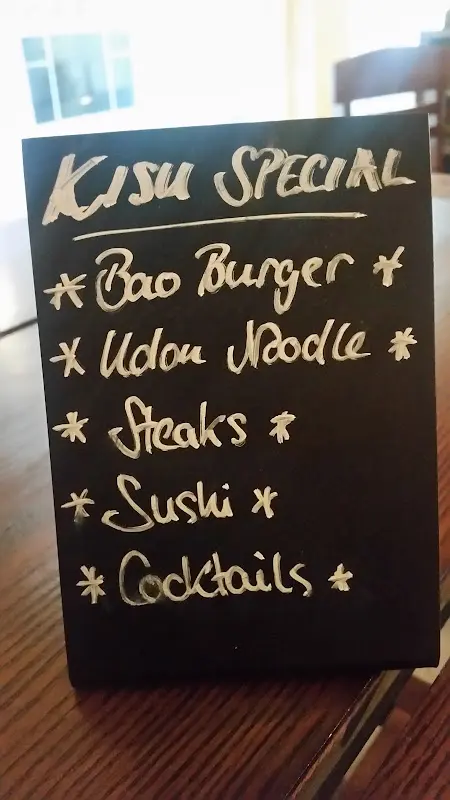 KISU SPECIAL
* Bao Burger *
* Udon Noodle *
* Steaks *
* Sushi *
* Cocktails *